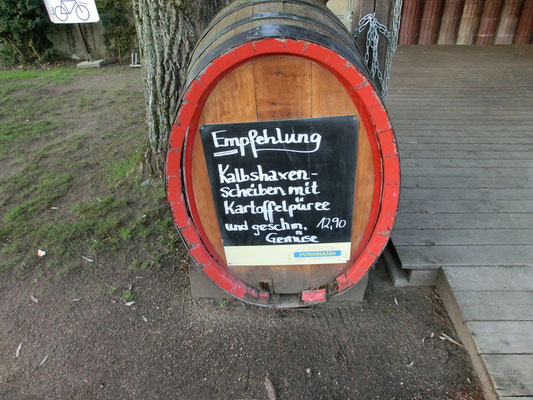 Empfehlung
Kalbshaxen-
scheiben mit
Kartoffelpüree
und geschm. 12,90
Gemüse
POSSMANN